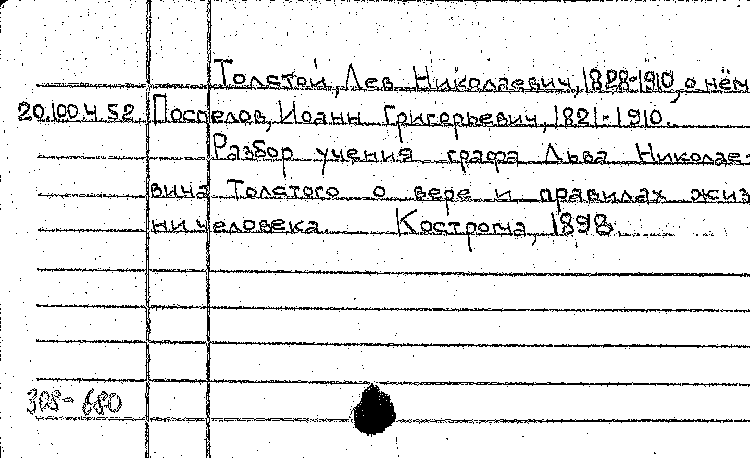 Толстой, Лев Николаевич, 1828-1910, о нём
20.100 4 52 Поспелов, Иоанн Григорьевич, 1821-1910.
Разбор учения графа Льва Николае-
вича Толстого о вере и правилах жиз
ни человека. Кострома, 1898.
308-680